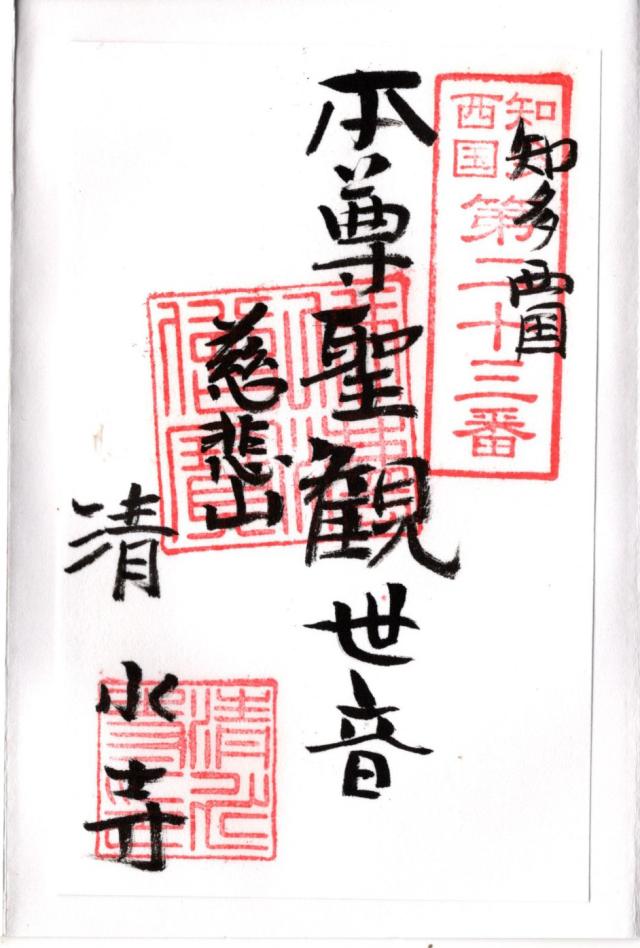 知多西国
知多
西国
第二十三番
本尊聖觀世音
慈悲山
清水寺
佛法僧寶